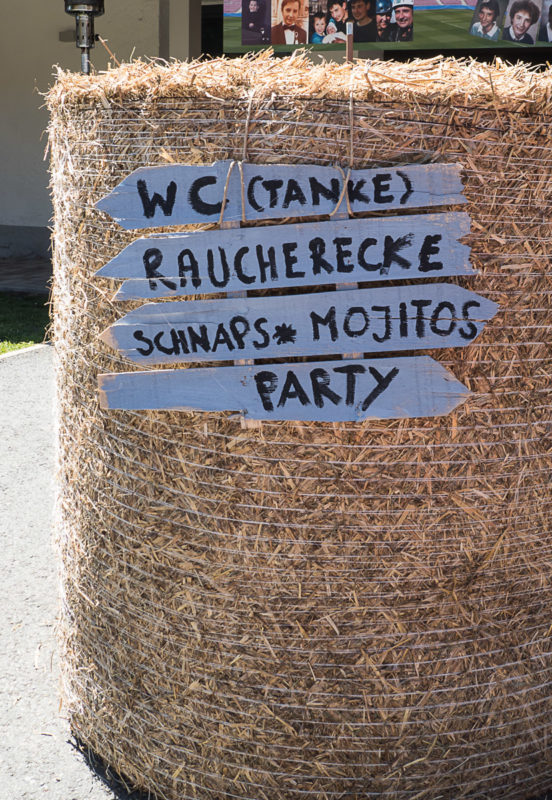 WC (TANKE)
RAUCHERECKE
SCHNAPS* MOJITOS
PARTY